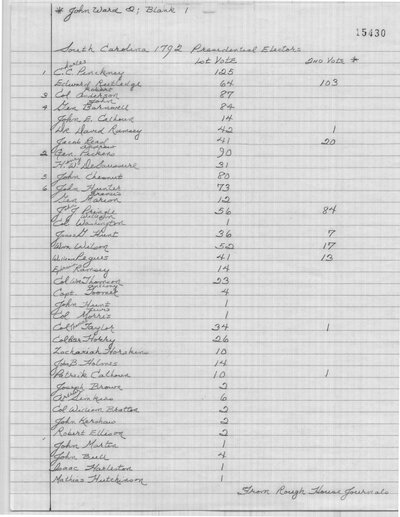 * John Ward 2; Blank 1
15430
South Carolina 1792 Presidential Electors
1st Vote 2nd Vote *
1 Charles C. Pinckney 125
Edward Rutledge 64 103
3 Col Robert Anderson 87
4 Gen John Barnwell 84
John E. Calhoun 14
Dr David Ramsey 42 1
Jacob Read 41 20
2 Gen. Andrew Pickens 90
H. W. DeSaussure 31
5 John Chesnut 80
6 John Hunter 73
Gen Francis Marion 12
J. J Pringle 56 84
Col William Washington 1
James G Hunt 36 7
Wm Wilson 52 17
William Pegues 41 13
Ephraim Ramsey 14
Col Wm Thomson 23
Capt. Anthony Toomer 4
John Hunt 1
Col Lewis Morris 1
Col Taylor 34 1
Col Horry 26
Zachariah Harskins 10
Jno B Holmes 14
Patrick Calhoun 10 1
Joseph Brown 2
Simkins 6
Col William Bratton 2
John Kershaw 2
Robert Ellison 2
John Martin 1
John Bull 4
Isaac Harleston 1
Mathias Hutchinson 1
From Rough House Journals